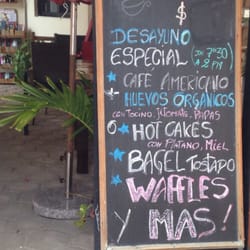 $
DESAYUNO
ESPECIAL (DE 7:30
A 2 PM)
CAFE AMERICANO
HUEVOS ORGANICOS
CON TOCINO, JITOMATE, PAPAS
HOT CAKES
CON PLATANO, MIEL
BAGEL TOSTADO
WAFFLES
Y MAS!